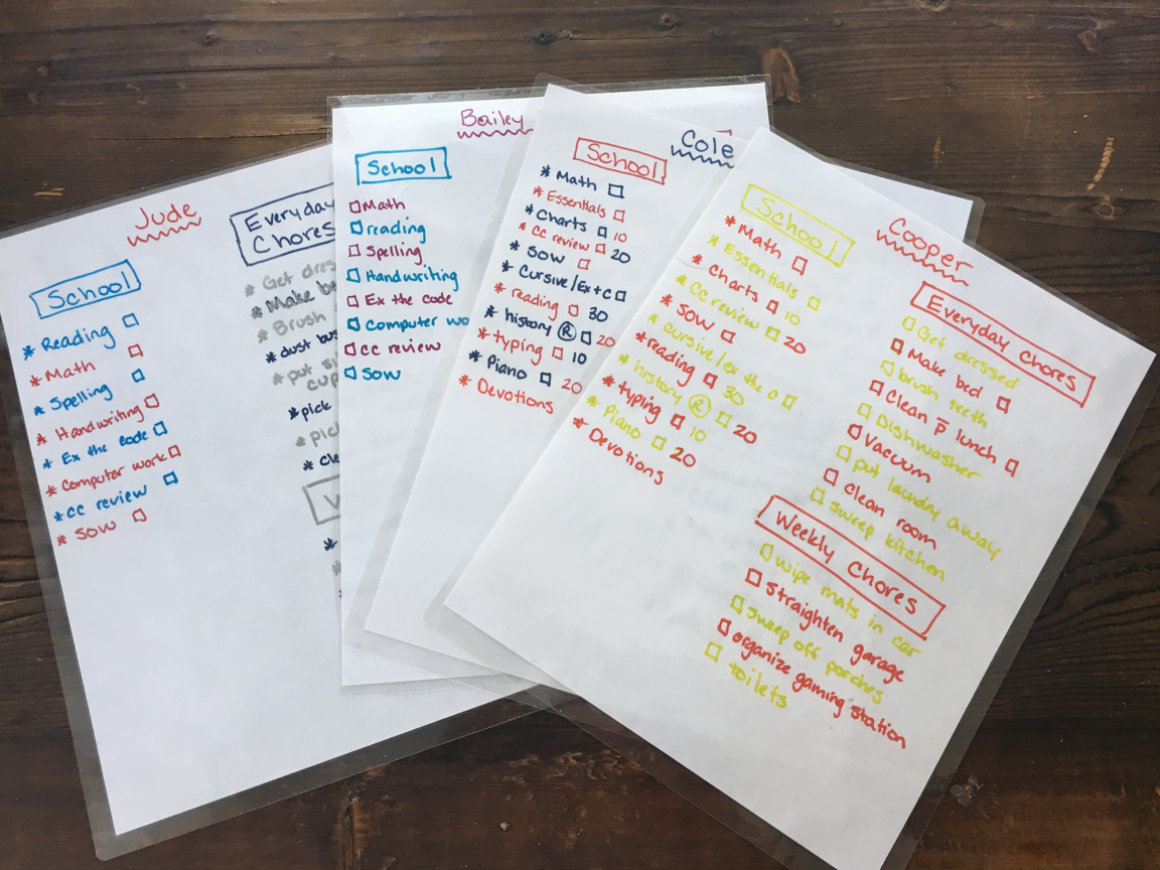 Jude
School
* Reading □
* Math □
* Spelling □
* Handwriting □
* Ex the Code □
* Computer work □
* CC review □
* SOW □
Everyday
Chores
* Get
* Make
* Brush
* dust
* put
* pick
* pick
Bailey
School
□ Math
□ reading
□ Spelling
□ Handwriting
□ Ex the code
□ Computer
□ CC review
□ SOW
Cole
School
* Math □
* Essentials □
* Charts □ 10
* CC review □ 20
* SOW □
* Cursive/Ex + C □
* reading □ 30
* history Ⓡ □ 20
* typing □ 10
* Piano □ 20
* Devotions
Cooper
School
* Math □
* Essentials □
* Charts □ 10
* CC review □ 20
* SOW □
* cursive/ex the c □
* reading □ 30
* history Ⓡ □ 20
* typing □ 10
* Piano □ 20
* Devotions
Everyday Chores
□ Get dressed
□ Make bed □
□ brush teeth
□ Clean p̅ lunch □
□ Dishwasher
□ Vacuum
□ put laundry away
□ Clean room
□ sweep kitchen
Weekly Chores
□ wipe mats in car
□ straighten garage
□ sweep off porches
□ organize gaming station
□ toilets